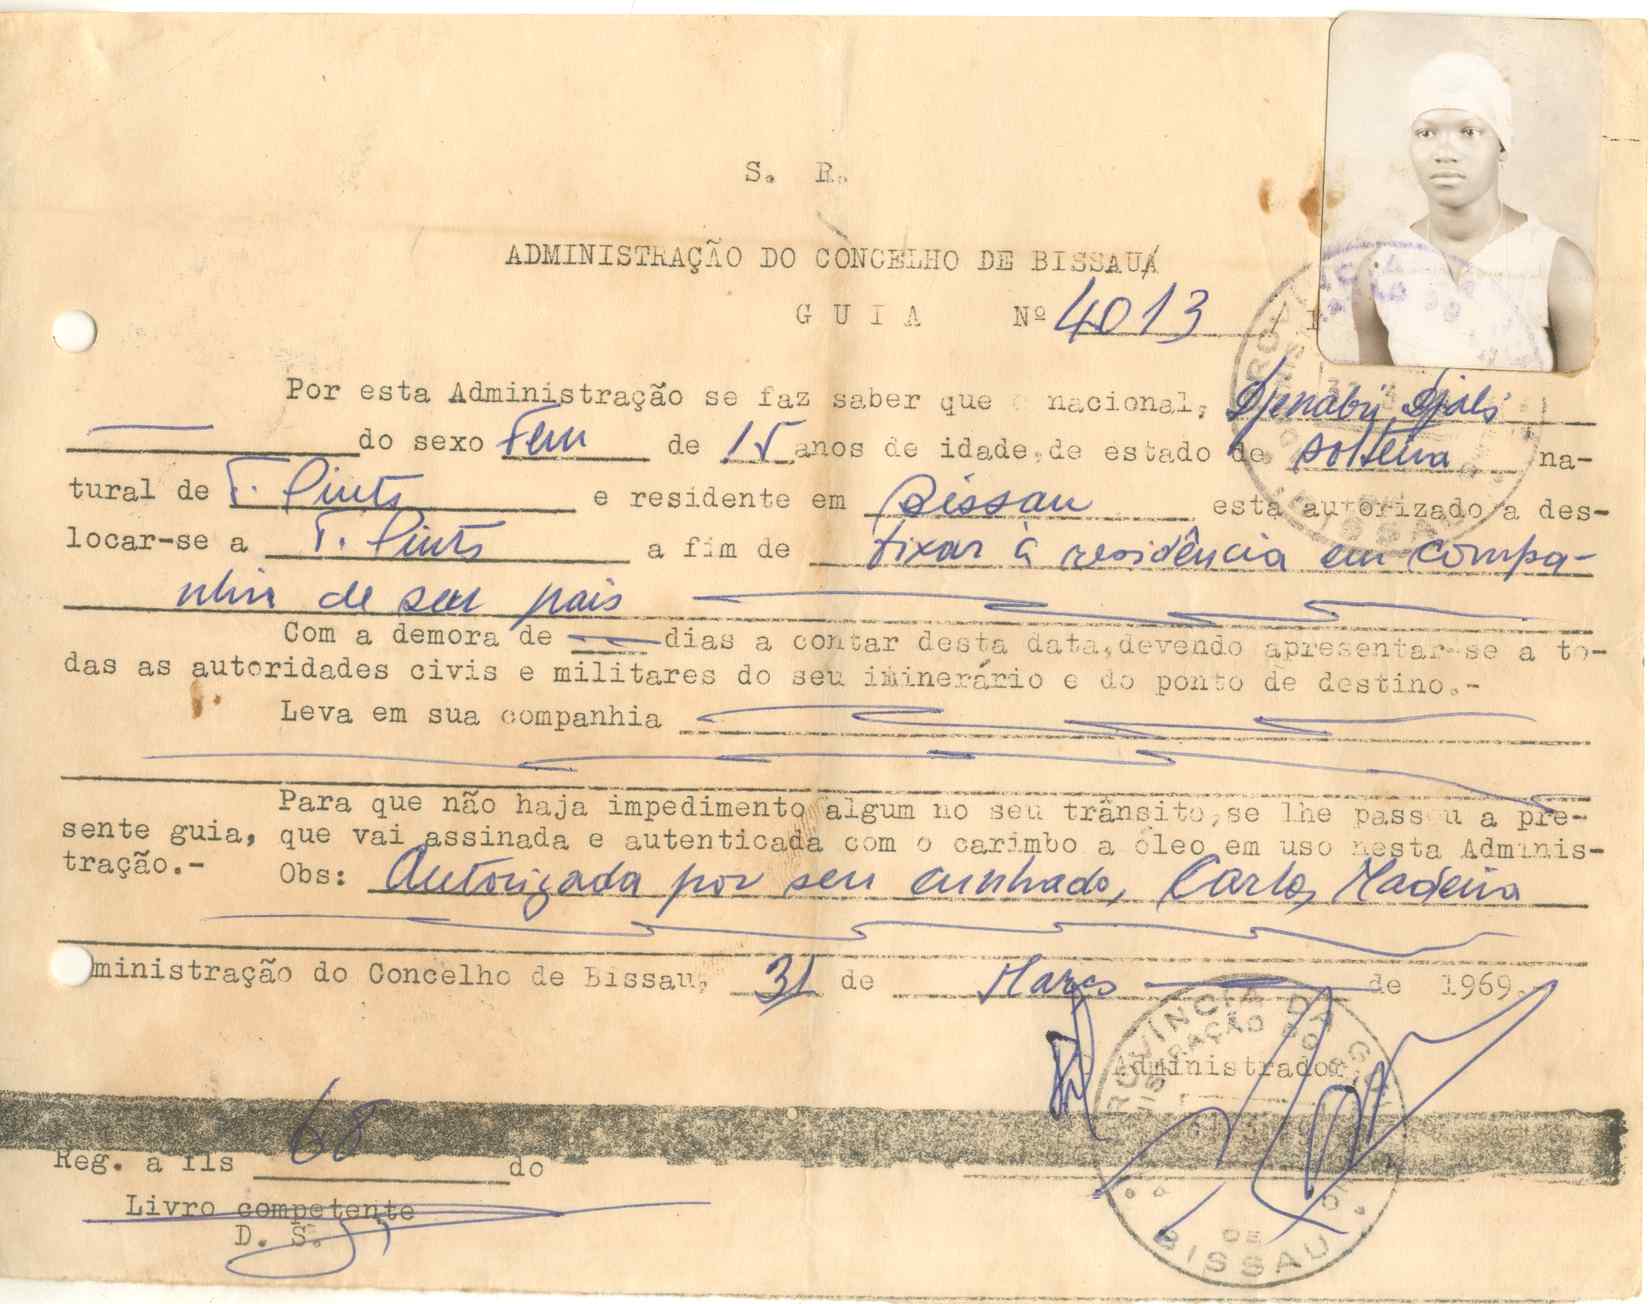 S. R.
ADMINISTRAÇÃO DO CONCELHO DE BISSAUA
GUIA Nº 4013 /
Por esta Administração se faz saber que nacional, Djenabú Djaló
do sexo Fem de 15 anos de idade, de estado de solteira na-
tural de T. Pinto e residente em Bissau está autorizado a des-
locar-se a T. Pinto a fim de fixar à residência em compa-
nhia de seu pais
Com a demora de dias a contar desta data, devendo apresentar-se a to-
das as autoridades civis e militares do seu iminerário e do ponto de destino.-
Leva em sua companhia
Para que não haja impedimento algum no seu trânsito, se lhe passou a pre-
sente guia, que vai assinada e autenticada com o carimbo a óleo em uso nesta Adminis-
tração.- Obs: Autorizada por seu cunhado, Carlos Madeira
ministração do Concelho de Bissau, 31 de Março de 1969.
Administrador,
PROVÍNCIA DA GUINÉ
DE BISSAU
Reg. a fls 68 do
Livro competente
D. S.